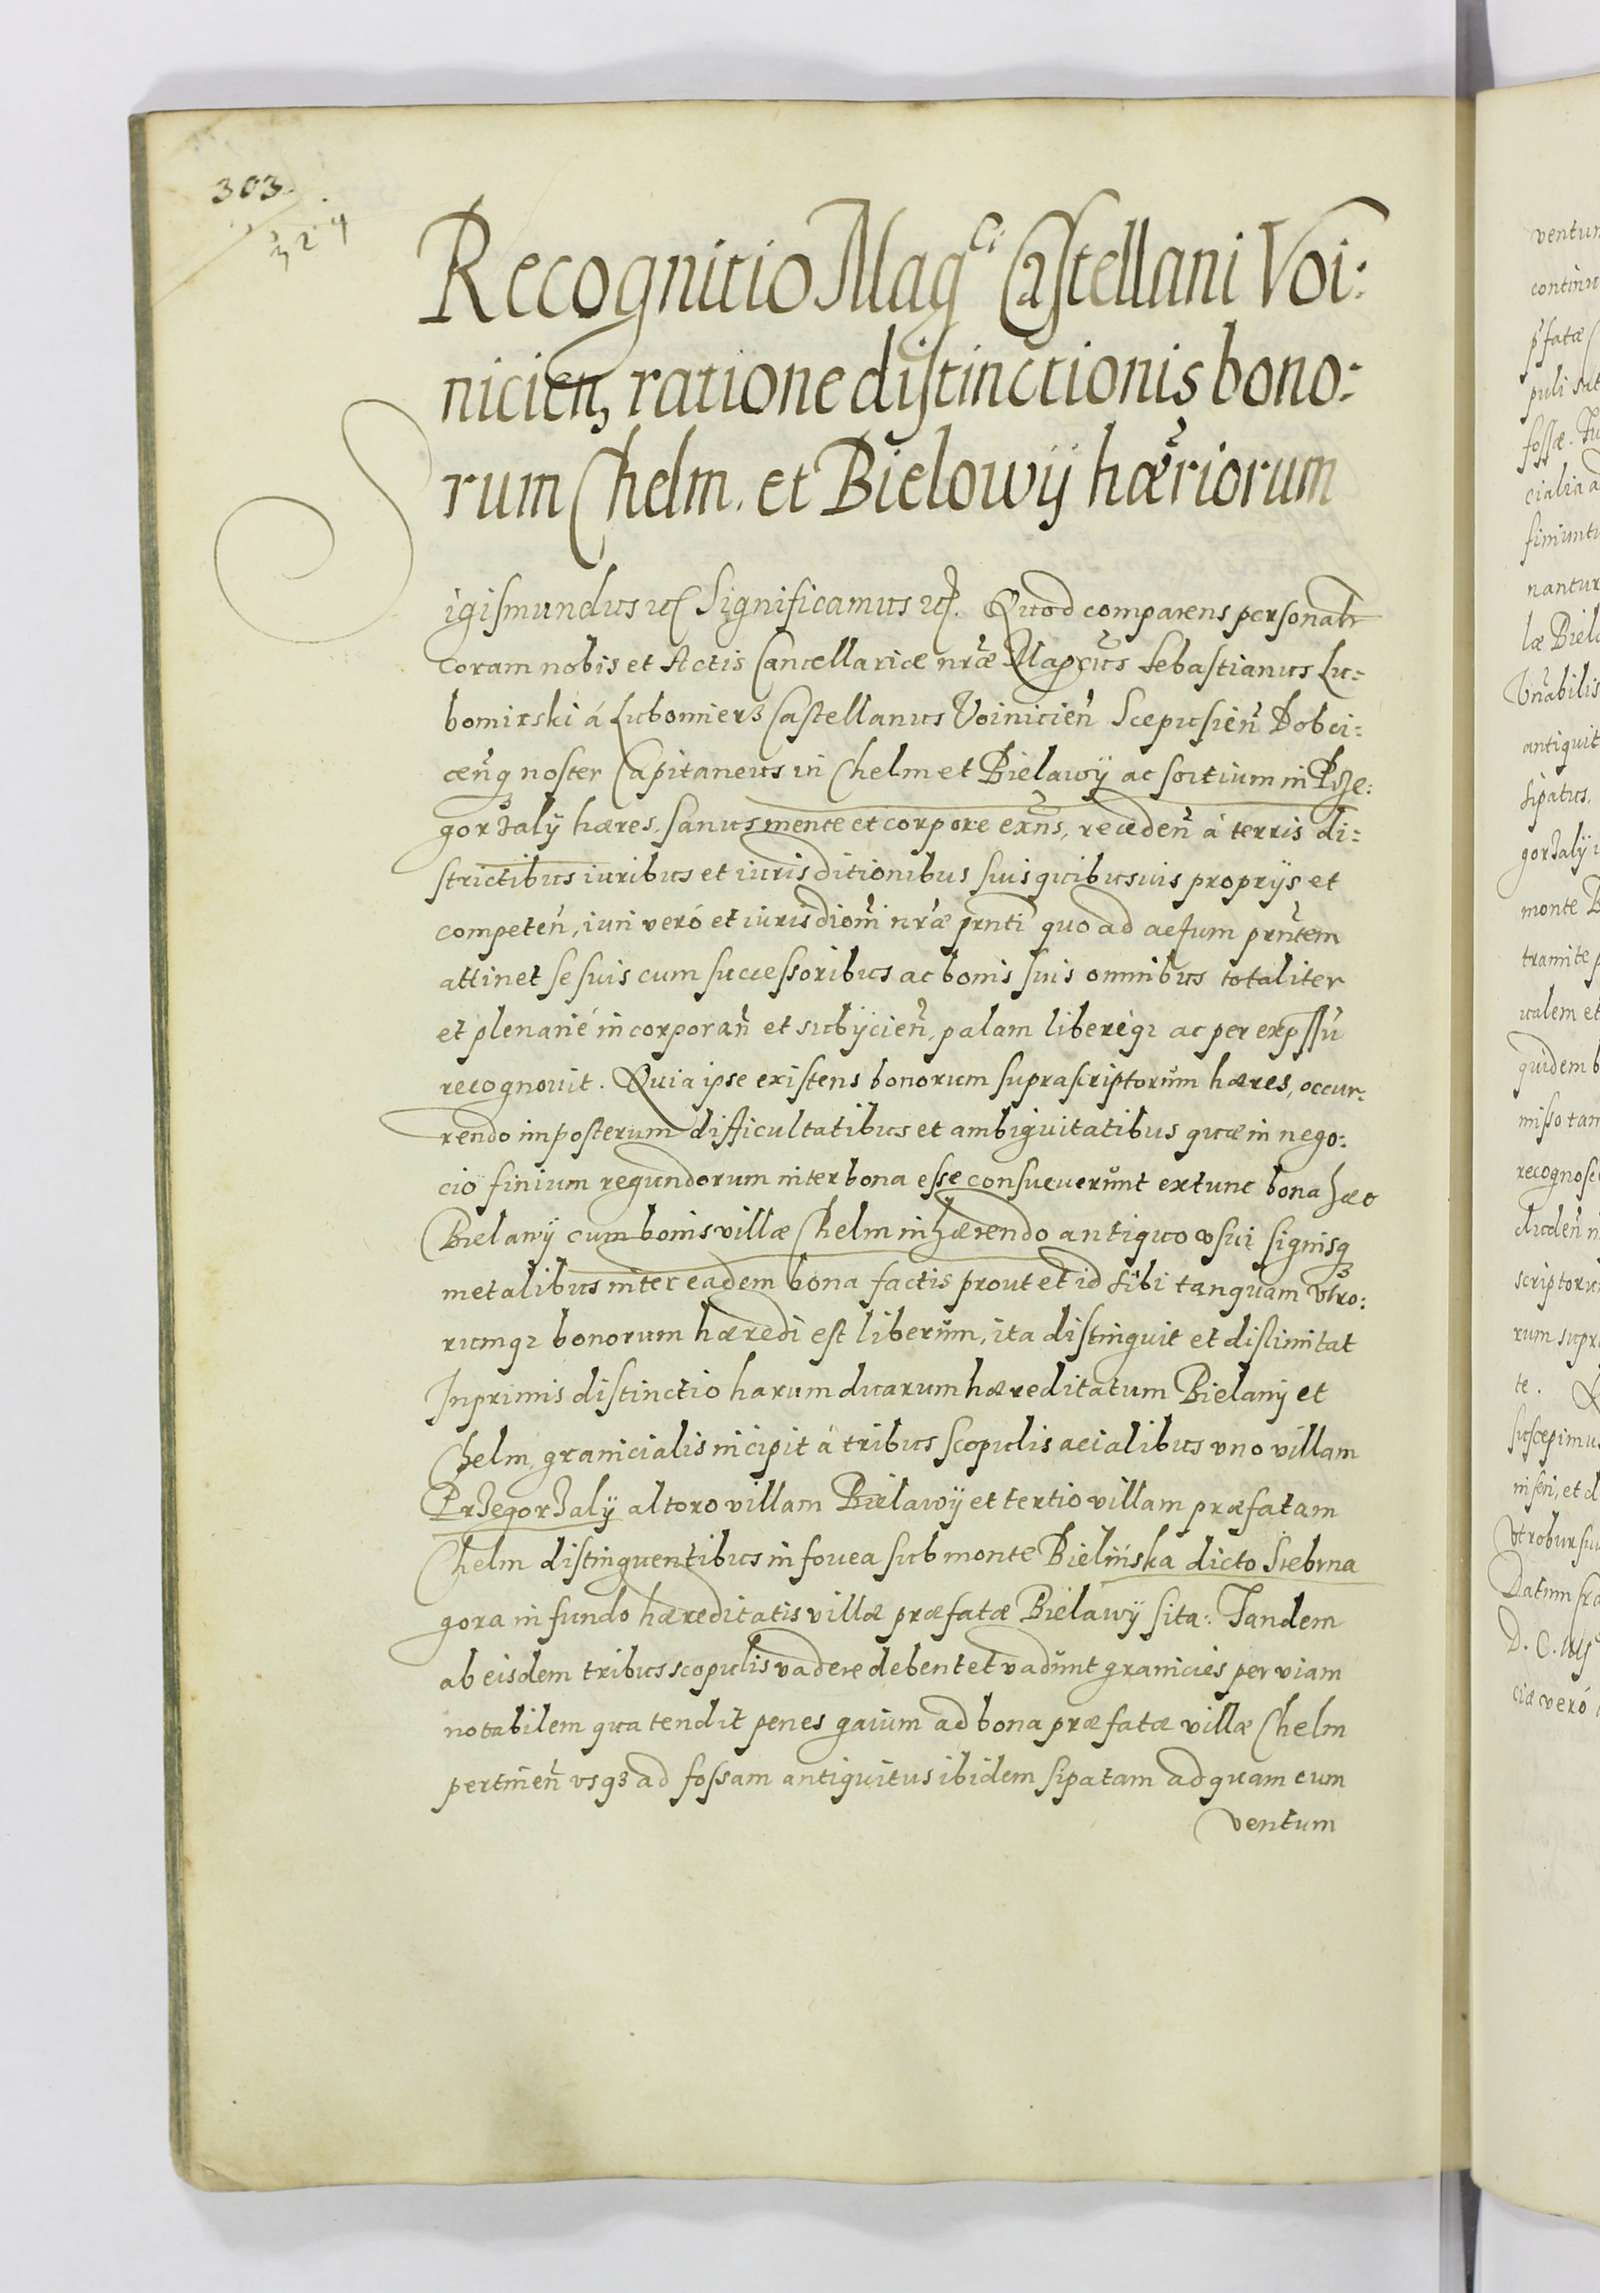 303.
324
Recognitio Mag^ci Castellani Voi:
nicien, ratione distinctionis bono:
rum Chelm. et Bielowÿ hæriorum
Sigismundus etc Significamus etc. Quod comparens personalr
coram nobis et Actis Cancellariæ nræ Magcus Sebastianus Lu:
bomirski á Lubomierz Castellanus Voinicien Scepusien Dobci:
cenq noster Capitaneus in Chelm et Bielawÿ ac sortium in Prze:
gorzalÿ hæres, sanus mente et corpore exns, receden á terris di:
strictibus iuribus et iurisditionibus suis quibusuis proprÿs et
competen, iuri veró et iurisdiom nræ prnti quo ad actum prntem
attinet se suis cum successoribus ac bonis suis omnibus totaliter
et plenarié incorporan et subÿcien, palam libereq3 ac per expssu
recognouit. Quia ipse existens bonorum suprascriptorum hæres, occur:
rendo imposterum difficultatibus et ambiguitatibus quæ in nego:
cio finium regundorum inter bona esse consueuerunt extunc bona hæc
Bielawÿ cum bonis villæ Chelm inhærendo antiquo vsui signisq3
metalibus inter eadem bona factis prout et id sibi tanquam vtro:
rumq3 bonorum hæredi est liberum, ita distinguit et dislimitat
Inprimis distinctio harum duarum hæreditatum Bielanÿ et
Chelm, granicialis incipit á tribus scopulis acialibus vno villam
Przegorzalÿ altoro villam Bielawÿ et tertio villam præfatam
Chelm distinguentibus in fouea sub monte Bielińska dicto Srebrna
gora in fundo hæreditatis villæ præfatæ Bielawÿ sita: Tandem
ab eisdem tribus scopulis vadere debent et vadunt granicies per viam
notabilem qua tendit penes gaium ad bona præfatæ villæ Chelm
pertinen vsq3 ad fossam antiquitus ibidem sipatam ad quam cum
ventum